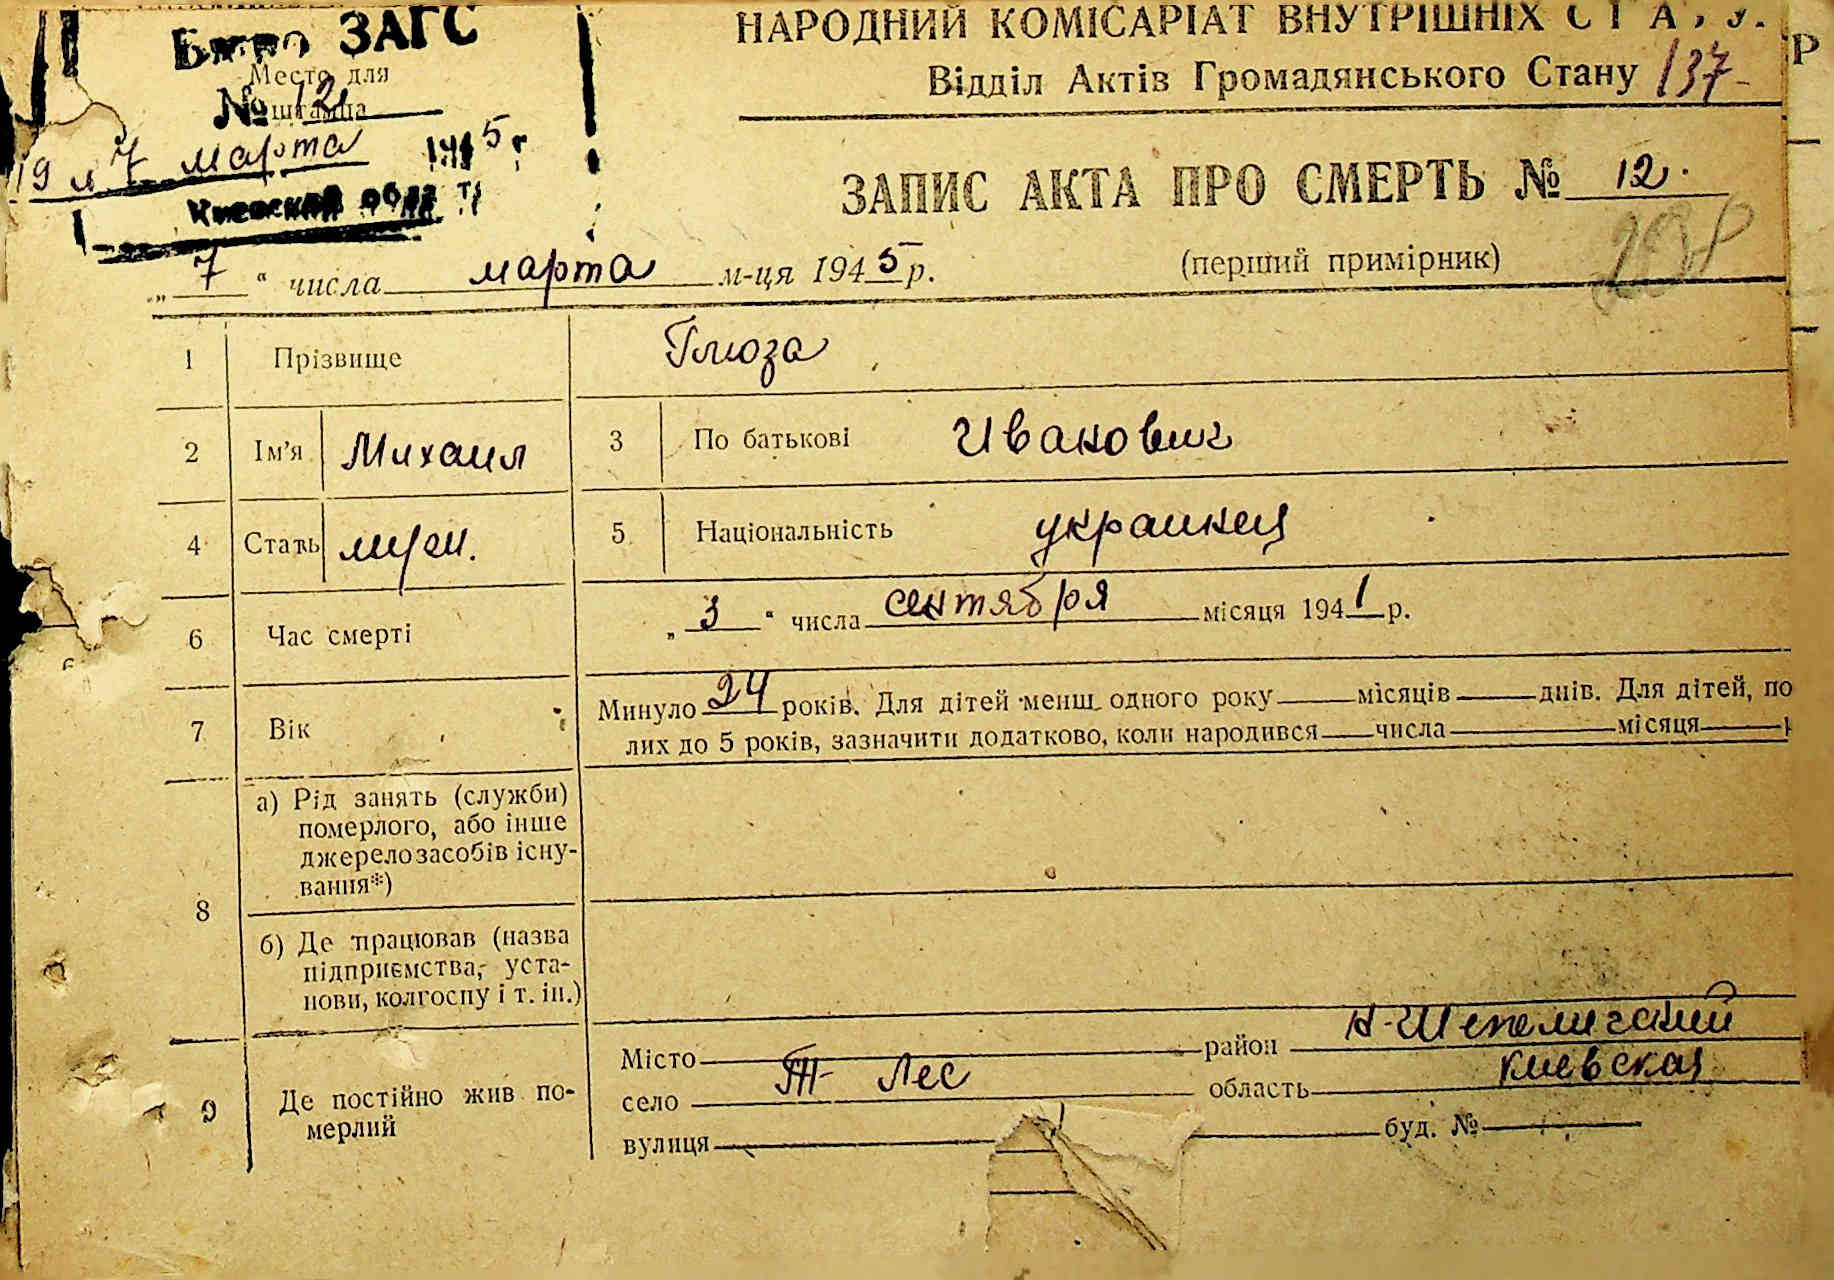 Бюро ЗАГС
НАРОДНИЙ КОМІСАРІАТ ВНУТРІШНІХ
Место для
штампа
№ 12
Відділ Актів Громадянського Стану 137
19 м 7 марта 1945 г
Киевская обл
ЗАПИС АКТА ПРО СМЕРТЬ № 12.
„7“ числа марта м-ця 1945 р.
(перший примірник)
1 Прізвище Глюза
2 Ім'я Михаил 3 По батькові Иванович
4 Стать муж. 5 Національність украинец
6 Час смерті „3“ числа сентября місяця 1941 р.
7 Вік Минуло 24 років. Для дітей менш одного року місяців днів. Для дітей, по
лих до 5 років, зазначити додатково, коли народився числа місяця р
8 а) Рід занять (служби)
померлого, або інше
джерело засобів існу-
вання*)
б) Де працював (назва
підприємства, уста-
нови, колгоспу і т. ін.)
9 Де постійно жив по-
мерлий
Місто район Н-Шепеличский
село Т- Лес область Киевская
вулиця буд. №